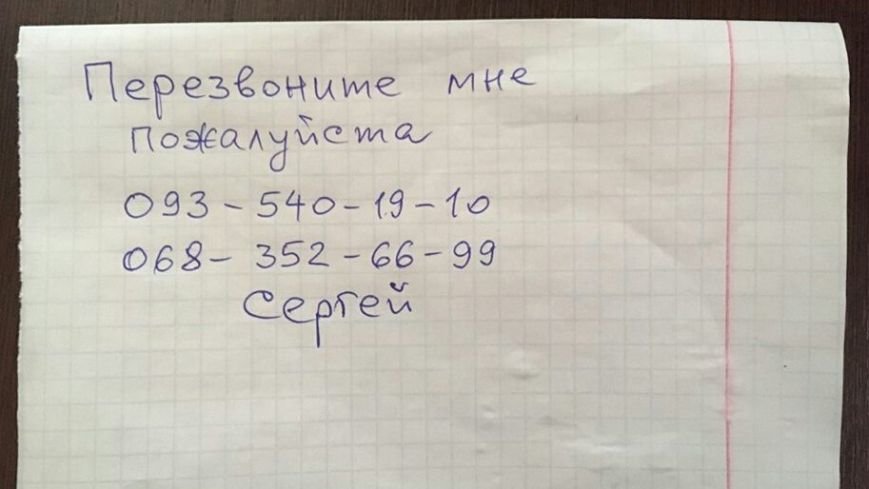 Перезвоните мне
пожалуйста
093-540-19-10
068-352-66-99
Сергей